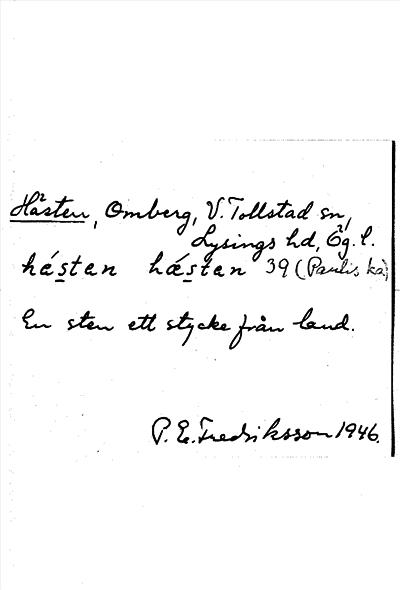 Hästen, Omberg, V. Tollstad sn,
Lysings hd, Ög. l.
hǽsten hǽsten 39 (Paulis ka)
En sten ett stycke från land.
P. E. Fredriksson 1946.